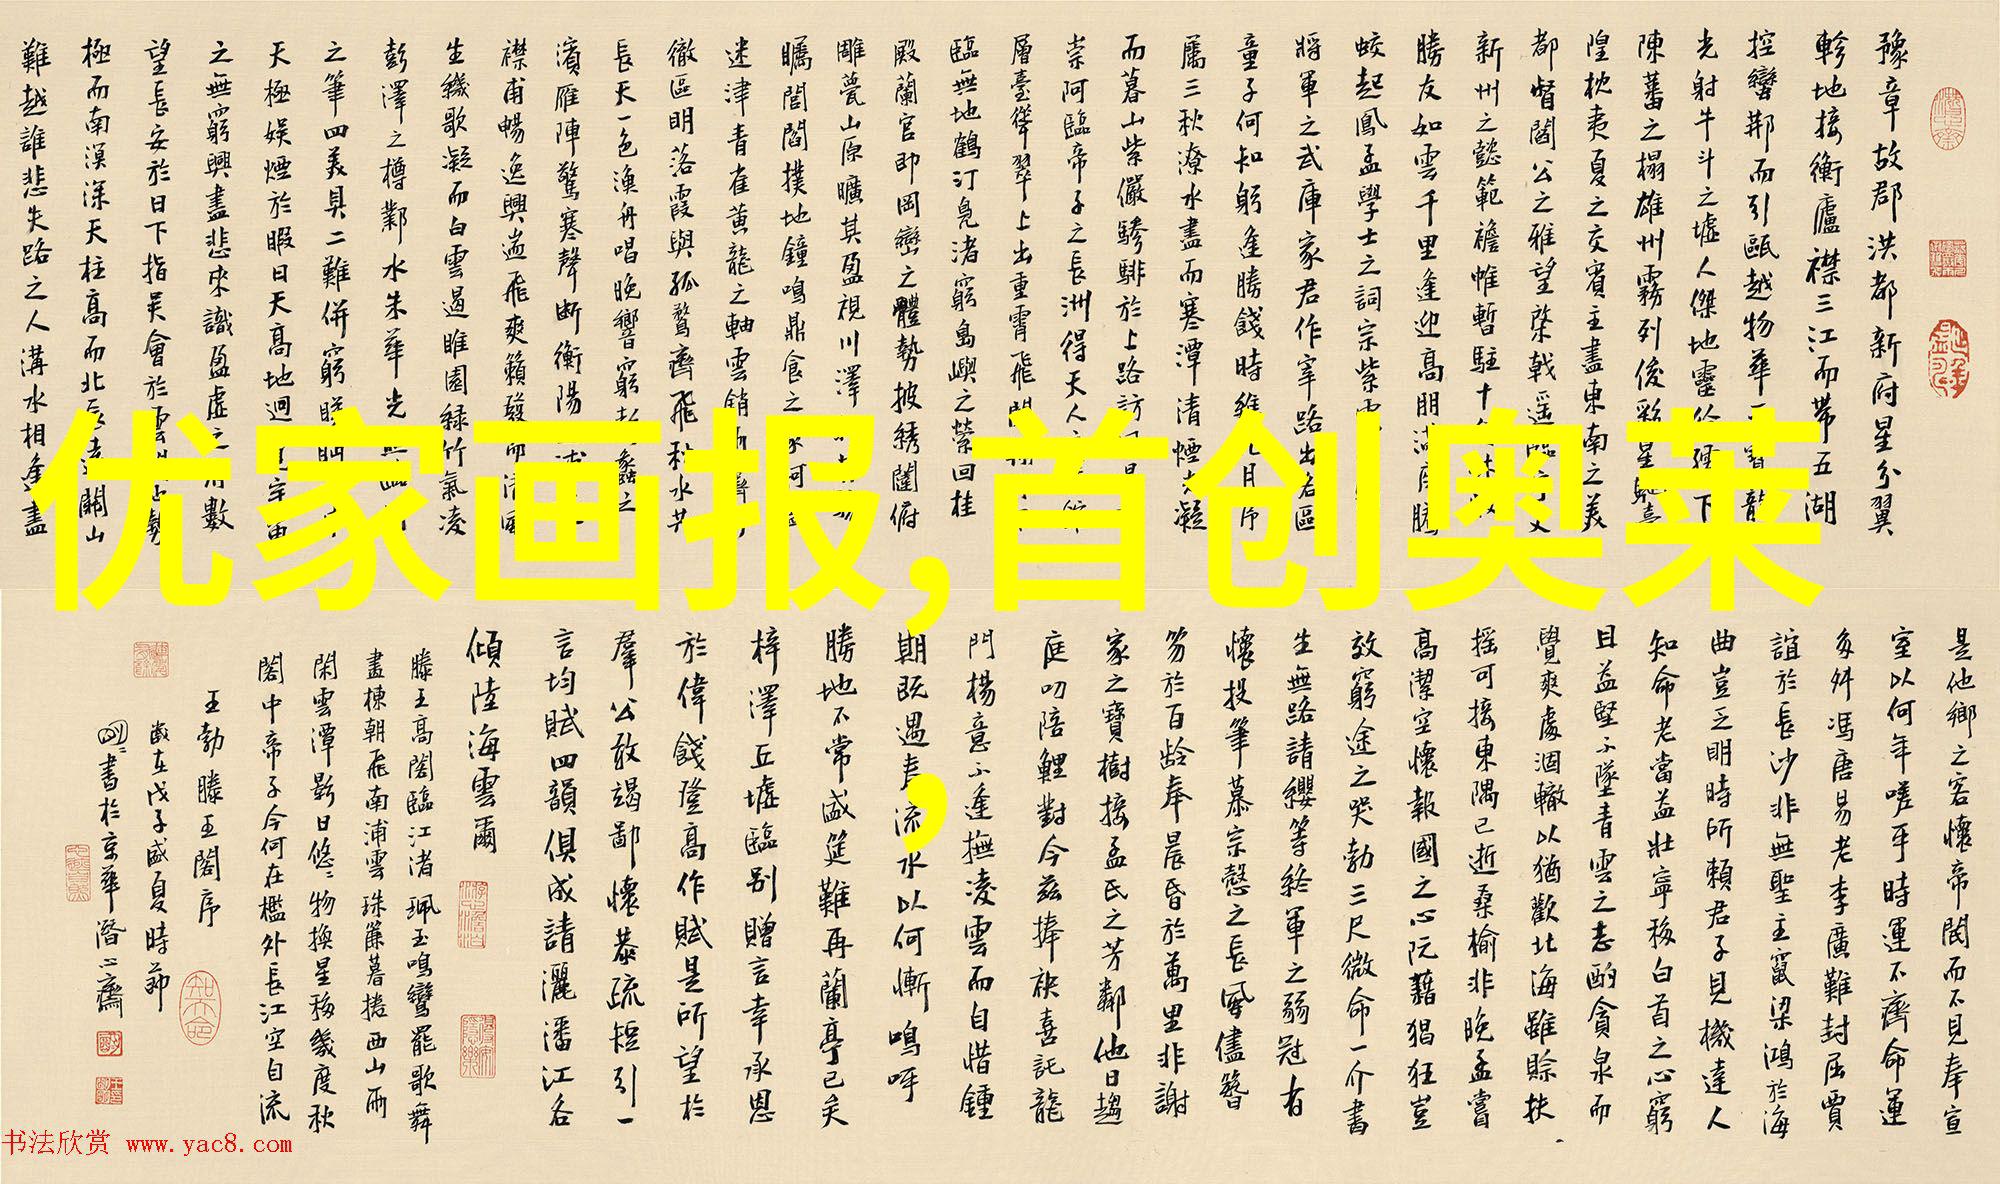 优家画报,首创奥莱
,
豫章故郡洪都新府星分翼
軫地接衡廬襟三江而帶五湖
控蠻荊而引甌越物華龍
光射牛斗之墟人傑地靈下
陳蕃之榻雄州霧列俊彩星馳臺
隍枕夷夏之交賓主盡東南之美
都督閻公之雅望棨戟遥臨文
新州之懿範襜帷暫駐十
勝友如雲千里逢迎高朋滿座騰
蛟起鳳孟學士之詞宗紫
將軍之武庫家君作宰路出名區
童子何知躬逢勝餞時維九月序
屬三秋潦水盡而寒潭清煙光凝
而暮山紫儼驂騑於上路訪
崇阿臨帝子之長洲得天人
層臺聳翠上出重霄飛閣
臨無地鶴汀鳧渚窮島嶼之縈回桂
殿蘭宫即岡巒之體勢披綉闥俯
雕甍山原曠其盈視川澤
矚閭閻撲地鐘鳴鼎食之家舸
迷津青雀黄龍之軸雲銷雨霽
徹區明落霞與孤鶩齊飛秋水共
長天一色漁舟唱晚響窮彭蠡之
濱雁陣驚寒聲斷衡陽
襟甫暢逸興遄飛爽籟發而清風
生纖歌凝而白雲遏睢園緑竹氣凌
彭澤之樽鄴水朱華光
之筆四美具二難併窮睇眄
天極娱煙於暇日天高地迥宇宙
之無窮興盡悲來識盈虚之有數
望長安於日下指吴會於雲間
極而南溟深天柱高而北辰遠關山
難越誰悲失路之人溝水相逢盡
是他鄉之客懷帝閽而不見奉宣
室以何年嗟乎時運不齊命運
多舛馮唐易老李廣難封屈賈
誼於長沙非無聖主竄梁鴻於海
曲豈乏明時所賴君子見機達人
知命老當益壯寧移白首之心窮
且益堅不墜青雲之志酌貪泉而
覺爽處涸轍以猶歡北海雖賒扶
摇可接東隅已逝桑榆非晚孟嘗
高潔空懷報國之心阮藉猖狂豈
效窮途之哭勃三尺微命一介書
生無路請纓等終軍之弱冠有
懷投筆慕宗慤之長風儘簪
笏於百齡奉晨昏於萬里非謝
家之寶樹接孟氏之芳鄰他日趨
庭叨陪鯉對今兹捧袂喜託龍
門楊意不逢撫凌雲而自惜鍾
期既遇奏流水以何慚嗚呼
勝地不常盛筵難再蘭亭已矣
梓澤丘墟臨别贈言幸承恩
於偉餞登高作賦是所望於
羣公敢竭鄙懷恭疏短引一
言均賦四韻俱成請灑潘江各
傾陸海雲爾
滕王高閣臨江渚珮玉鳴鸞罷歌舞
畫棟朝飛南浦雲珠簾暮捲西山雨
閑雲潭影日悠悠物換星移幾度秋
閣中帝子今何在檻外長江空自流
王勃滕王閣序
歲在戊子盛夏時節
書於京華潛心齋
书法欣赏 www.yac8.com